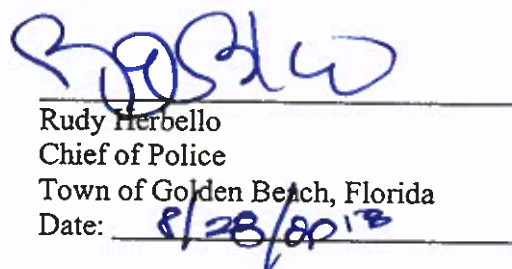 Rudy Herbello
Chief of Police
Town of Golden Beach, Florida
Date: 8/28/2018